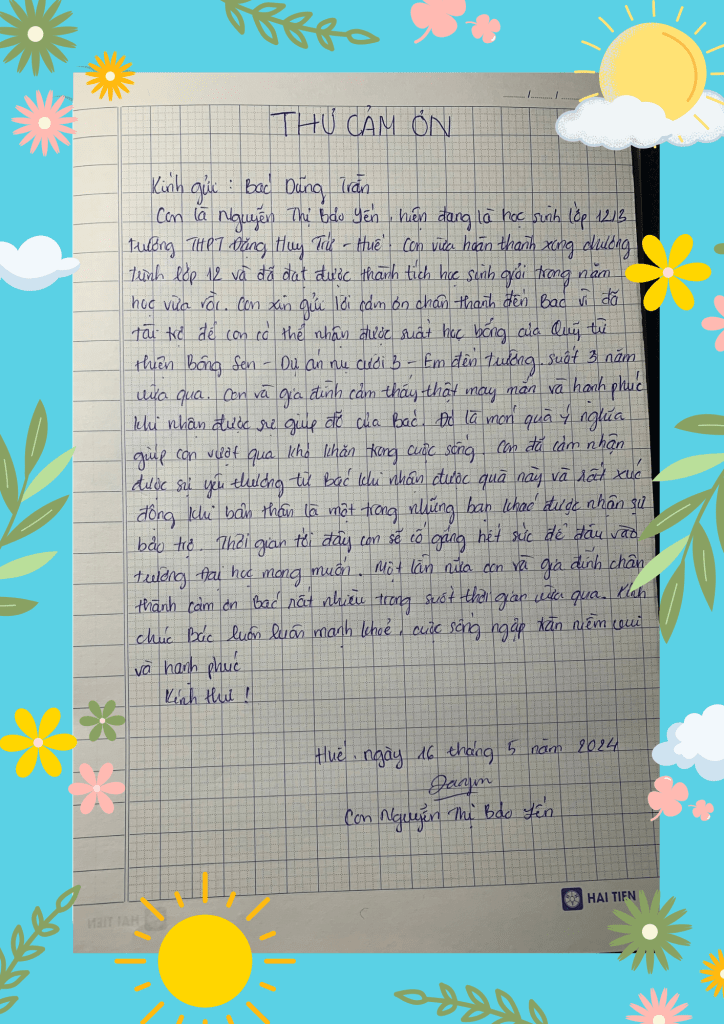 THƯ CẢM ƠN
Kính gửi : Bác Dũng Trần
Con là Nguyễn Thị Bảo Yến, hiện đang là học sinh lớp 12/3
trường THPT Đặng Huy Trứ - Huế. Con vừa hoàn thành xong chương
trình lớp 12 và đã đạt được thành tích học sinh giỏi trong năm
học vừa rồi. Con xin gửi lời cảm ơn chân thành đến Bác vì đã
tài trợ để con có thể nhận được suất học bổng của Quỹ từ
thiện Bông Sen - Dự án nụ cười 3 - Em đến trường suốt 3 năm
vừa qua. Con và gia đình cảm thấy thật may mắn và hạnh phúc
khi nhận được sự giúp đỡ của Bác. Đó là món quà ý nghĩa
giúp con vượt qua khó khăn trong cuộc sống. Con đã cảm nhận
được sự yêu thương từ Bác khi nhận được quà này và rất xúc
động khi bản thân là một trong những bạn khác được nhận sự
bảo trợ. Thời gian tới đây con sẽ cố gắng hết sức để đậu vào
trường Đại học mong muốn. Một lần nữa con và gia đình chân
thành cảm ơn Bác rất nhiều trong suốt thời gian vừa qua. Kính
chúc Bác luôn luôn mạnh khoẻ, cuộc sống ngập tràn niềm vui
và hạnh phúc
Kính thư !
Huế, ngày 16 tháng 5 năm 2024
Con Nguyễn Thị Bảo Yến
HẢI TIẾN